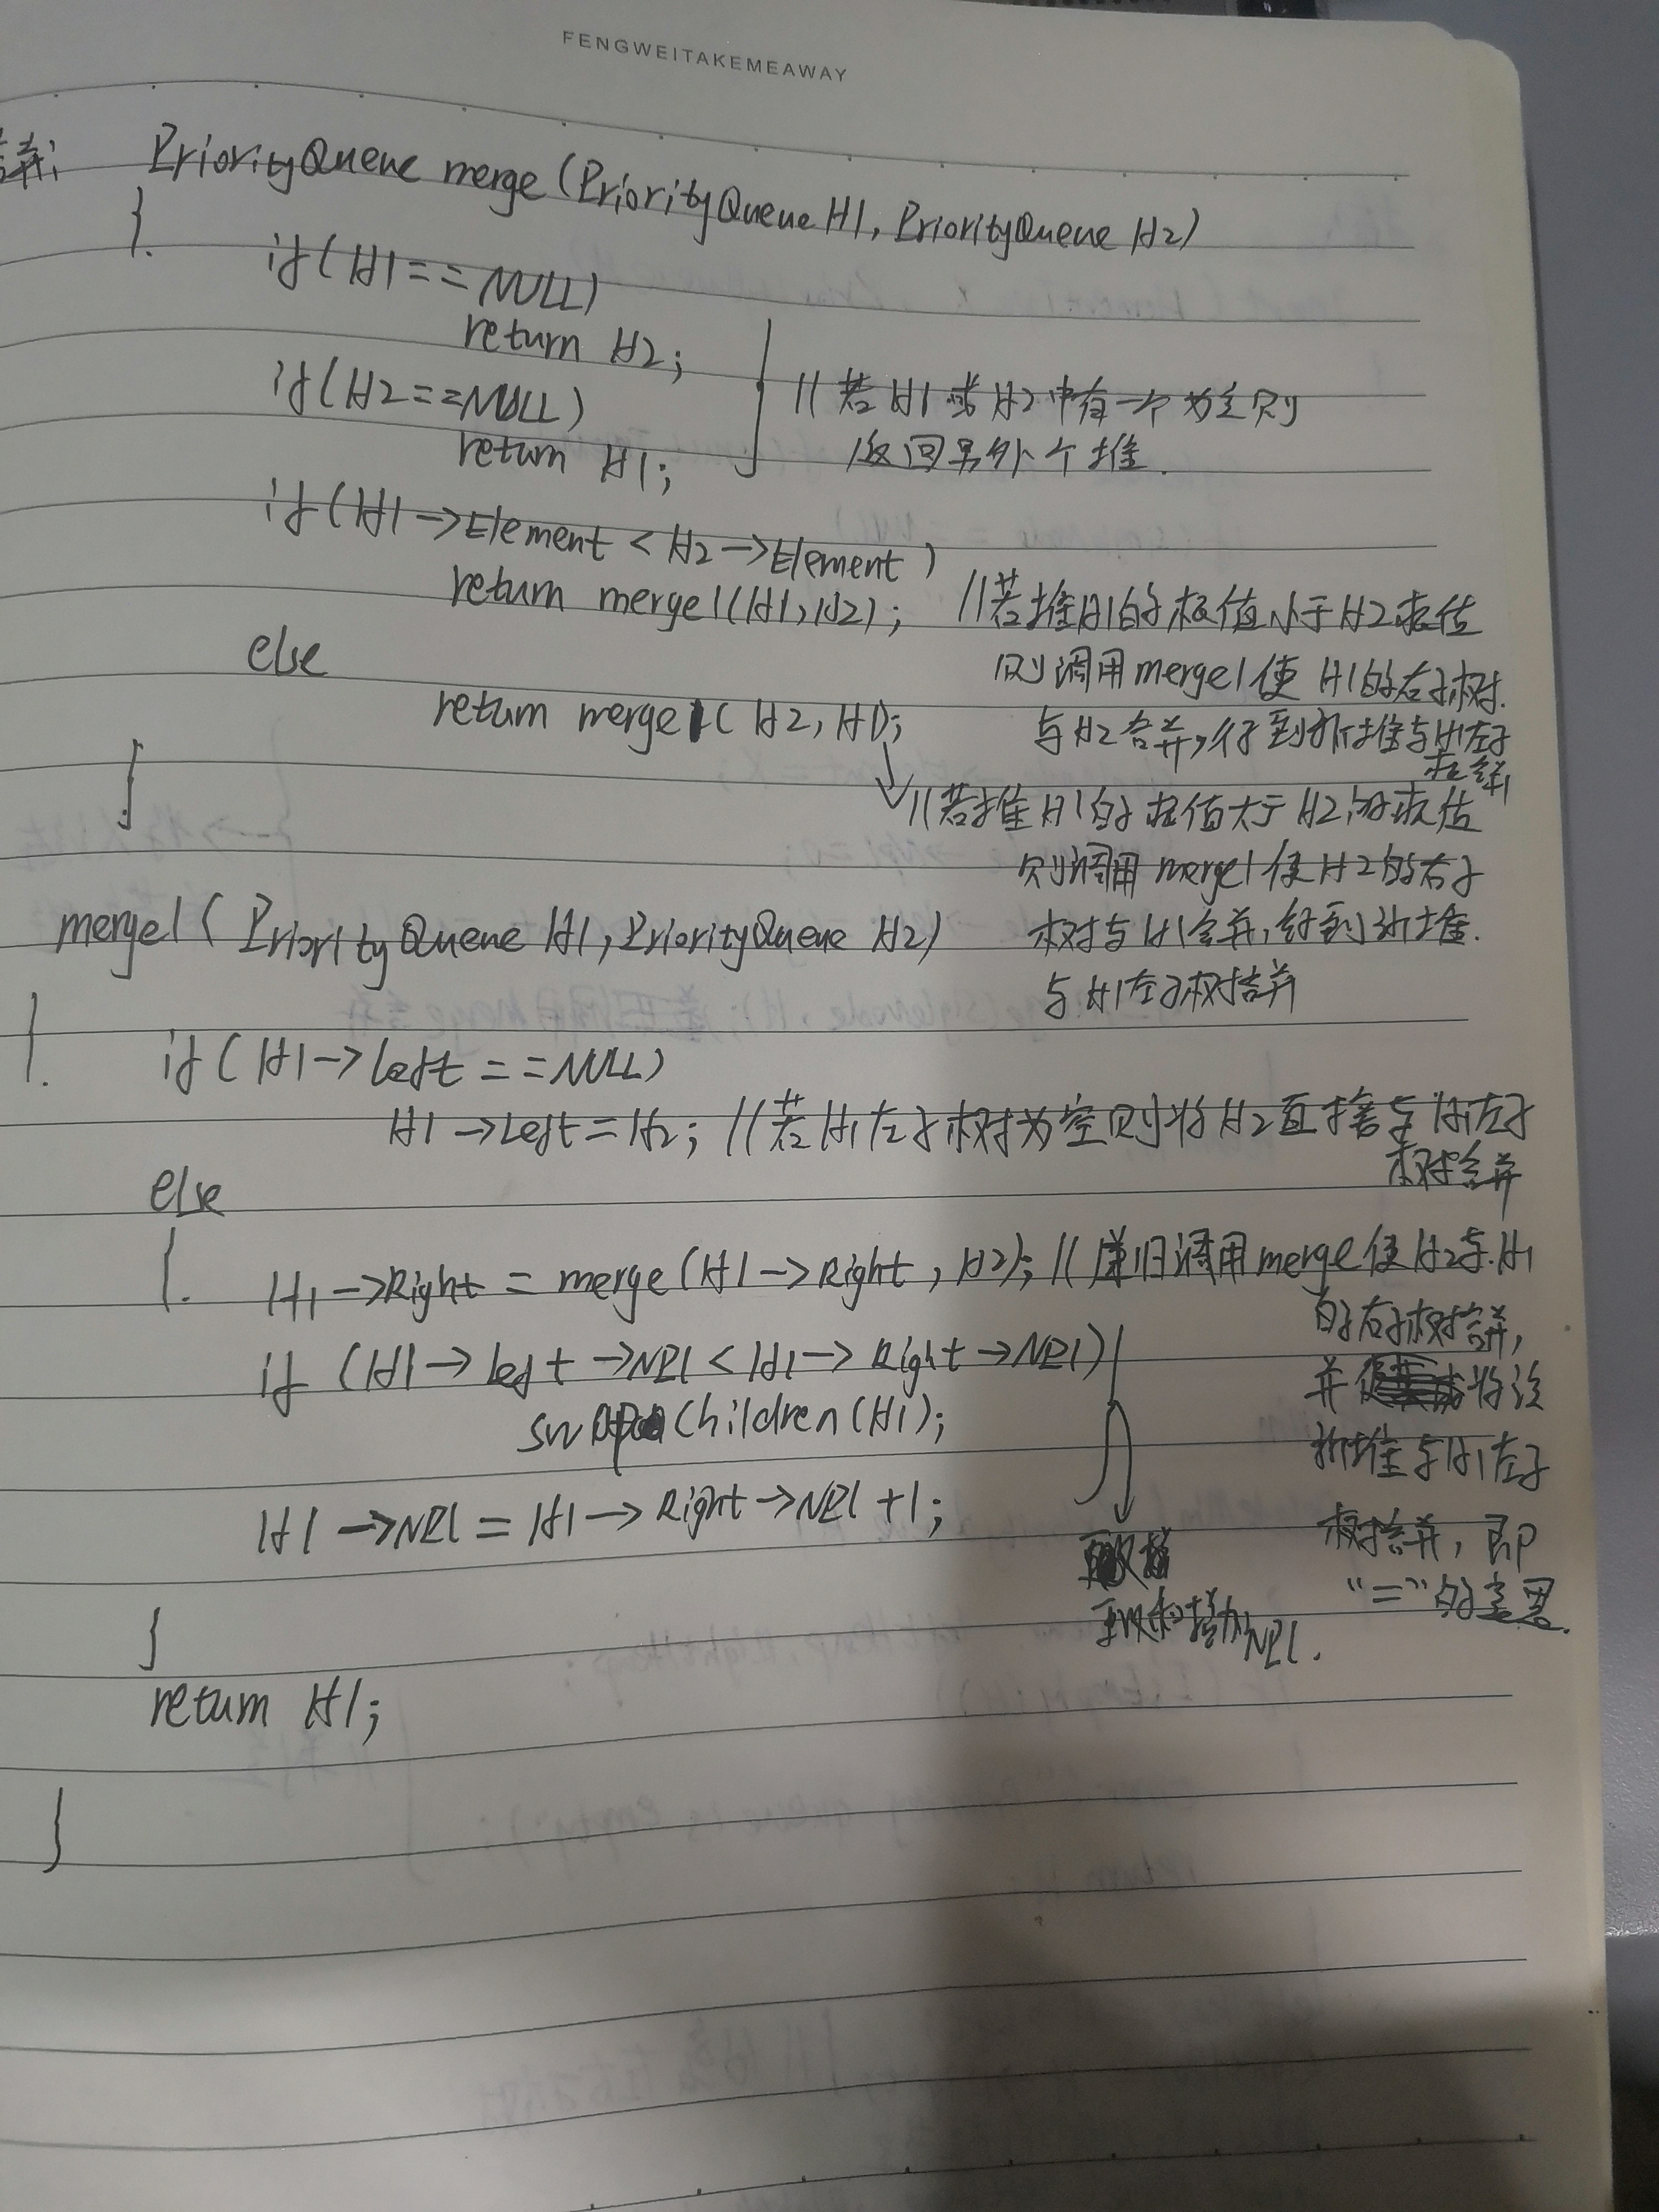 FENGWEITAKEMEAWAY
合并: PriorityQueue merge (PriorityQueue H1, PriorityQueue H2)
{
if (H1 == NULL)
return H2;
if (H2 == NULL)
return H1;
//若H1或H2中有一个为空则
返回另外个堆.
if (H1 -> Element < H2 -> Element)
return merge1(H1, H2); //若堆H1的根值小于H2根值
则调用merge1使H1的右子树
与H2合并,得到新堆与H1左子
树合并
else
return merge1(H2, H1);
//若堆H1的根值大于H2的根值
则调用merge1使H2的右子
树与H1合并,得到新堆.
与H1左子树合并
}
merge1 (PriorityQueue H1, PriorityQueue H2)
{
if (H1 -> Left == NULL)
H1 -> Left = H2; //若H1左子树为空则将H2直接与H1左子
树合并
else
{
H1 -> Right = merge(H1 -> Right, H2); //递归调用merge使H2与H1
的右子树合并,
并将该
新堆与H1左子
树合并, 即
“=”的意思.
if (H1 -> Left -> NPl < H1 -> Right -> NPl)
swapChildren(H1);
H1 -> NPl = H1 -> Right -> NPl + 1;
NPl.
}
return H1;
}